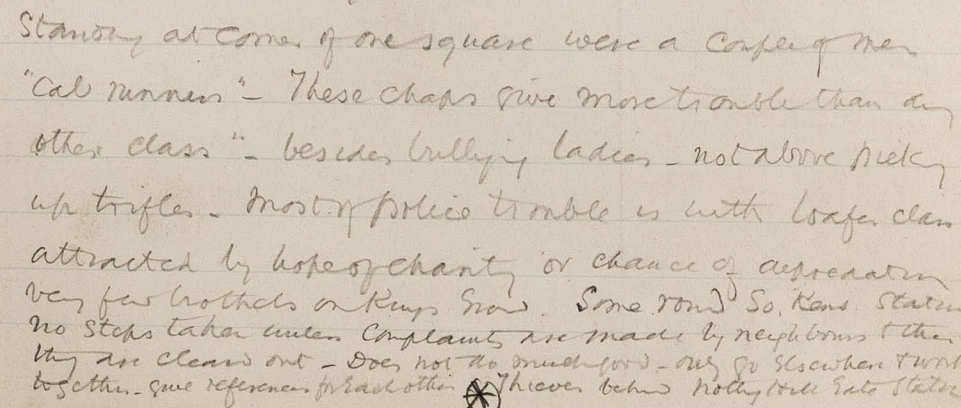 Standing at corner of one square were a couple of men
"Cab runners" - These chaps give more trouble than any
other class" - besides bullying ladies - not above picking
up trifles - Most of police trouble is with loafer class
attracted by hope of charity or chance of depredation
Very few brothels on Kings . Some round So. Kens. Station
No steps taken unless complaints are made by neighbours & then
they are cleared out - Does not do much good - only go elsewhere & work
together - give references for each other Thieves behind Notting Hill Gate Station